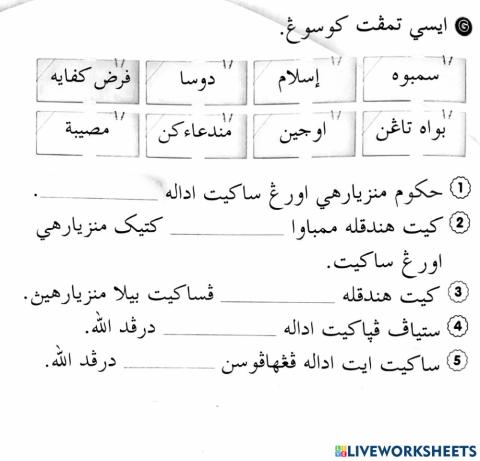 G ايسي تمڤت كوسوڠ.
سمبوه إسلام دوسا فرض كفايه
بواه تاڠن اوجين مندعاءكن مصيبة
1 حكوم منزيارهي اورڠ ساكيت اداله ____________.
2 كيت هندقله ممباوا ____________ كتيک منزيارهي
اورڠ ساكيت.
3 كيت هندقله ____________ ڤساكيت بيلا منزيارهيڽ.
4 ستياڤ ڤڽاكيت اداله ____________ درڤد الله.
5 ساكيت ايت اداله ڤڠهاڤوسن ____________ درڤد الله.
LIVEWORKSHEETS